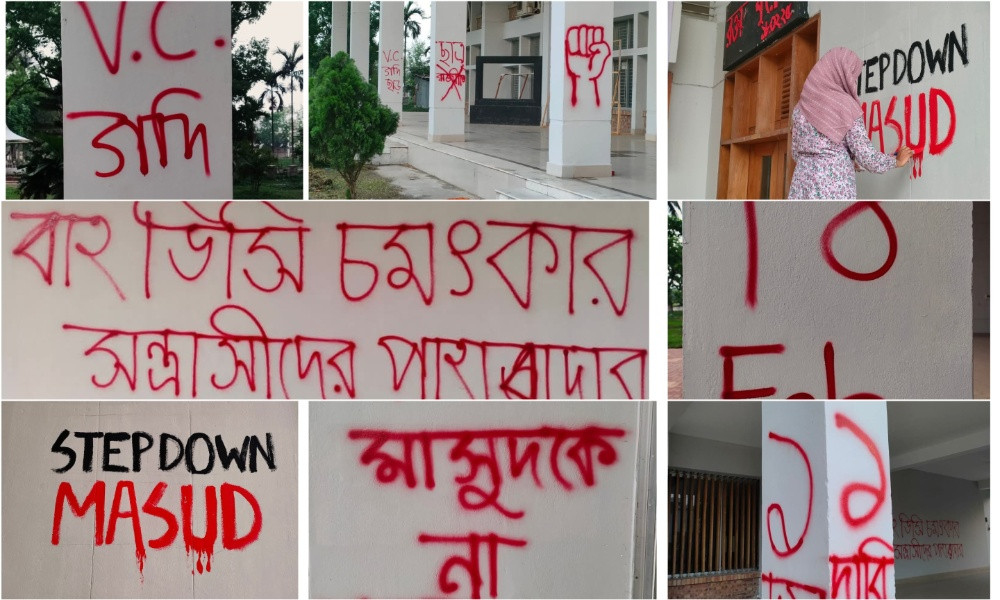 V.C.
গদি
V.C
গদি
ছাড়
ছাত্র
রাজনীতি
STEPDOWN
MASUD
বাহ ভিসি চমৎকার
সন্ত্রাসীদের পাহারাদার
18
Feb
STEPDOWN
MASUD
মাসুদকে
না
১১
দাবি
বাহ ভিসি চমৎকার
সন্ত্রাসীদের পাহারাদার